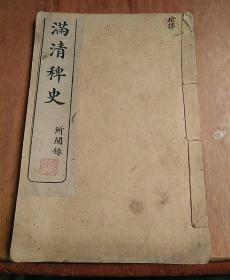 滿清稗史
所聞錄